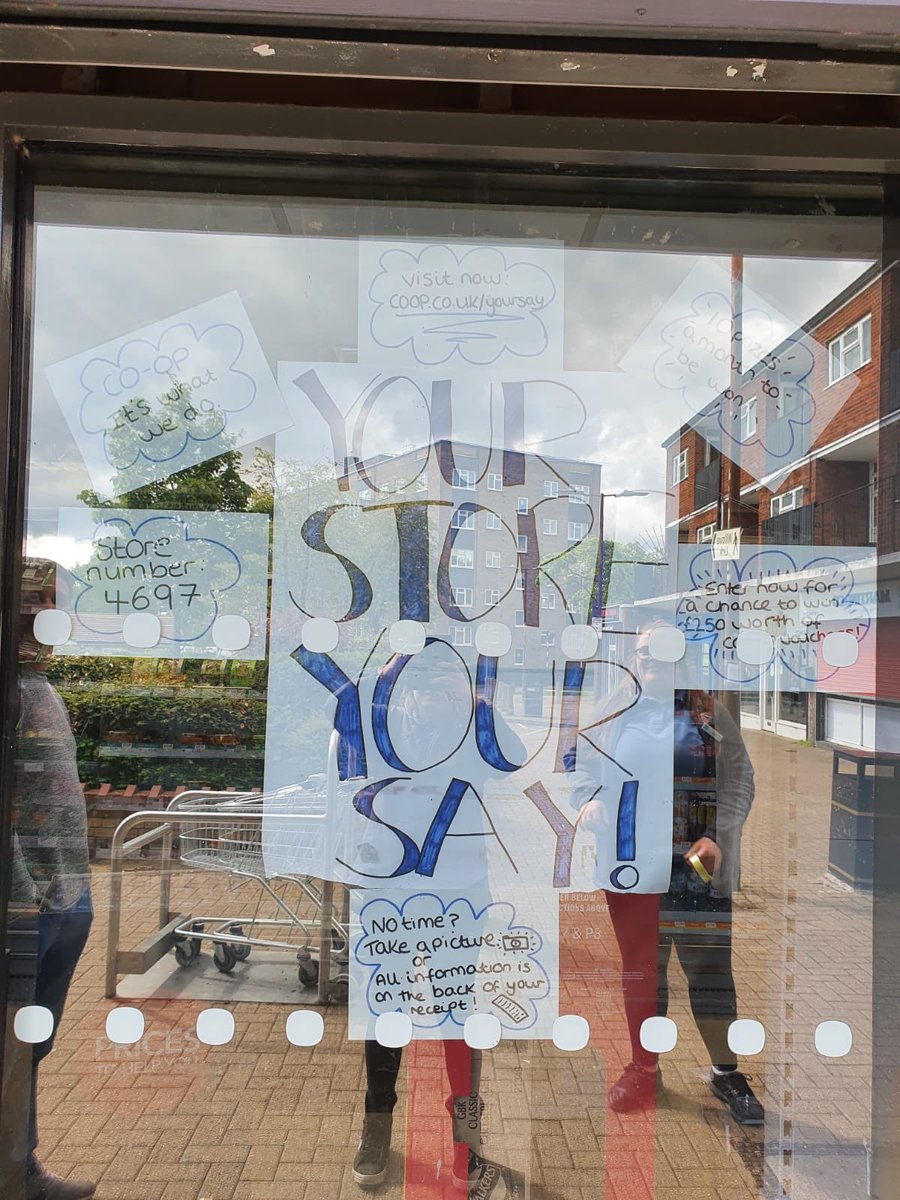 Visit now:
COOP.co.uk/yoursay
CO-OP
It's what
we do
10 prizes
a month to
be won
YOUR
STORE
YOUR
SAY!
Store
number:
4697
Enter now for
a chance to win
£250 worth of
No time?
Take a picture
or
All information is
on the back of your
receipt!
PRICES
GBK
CLASSIC